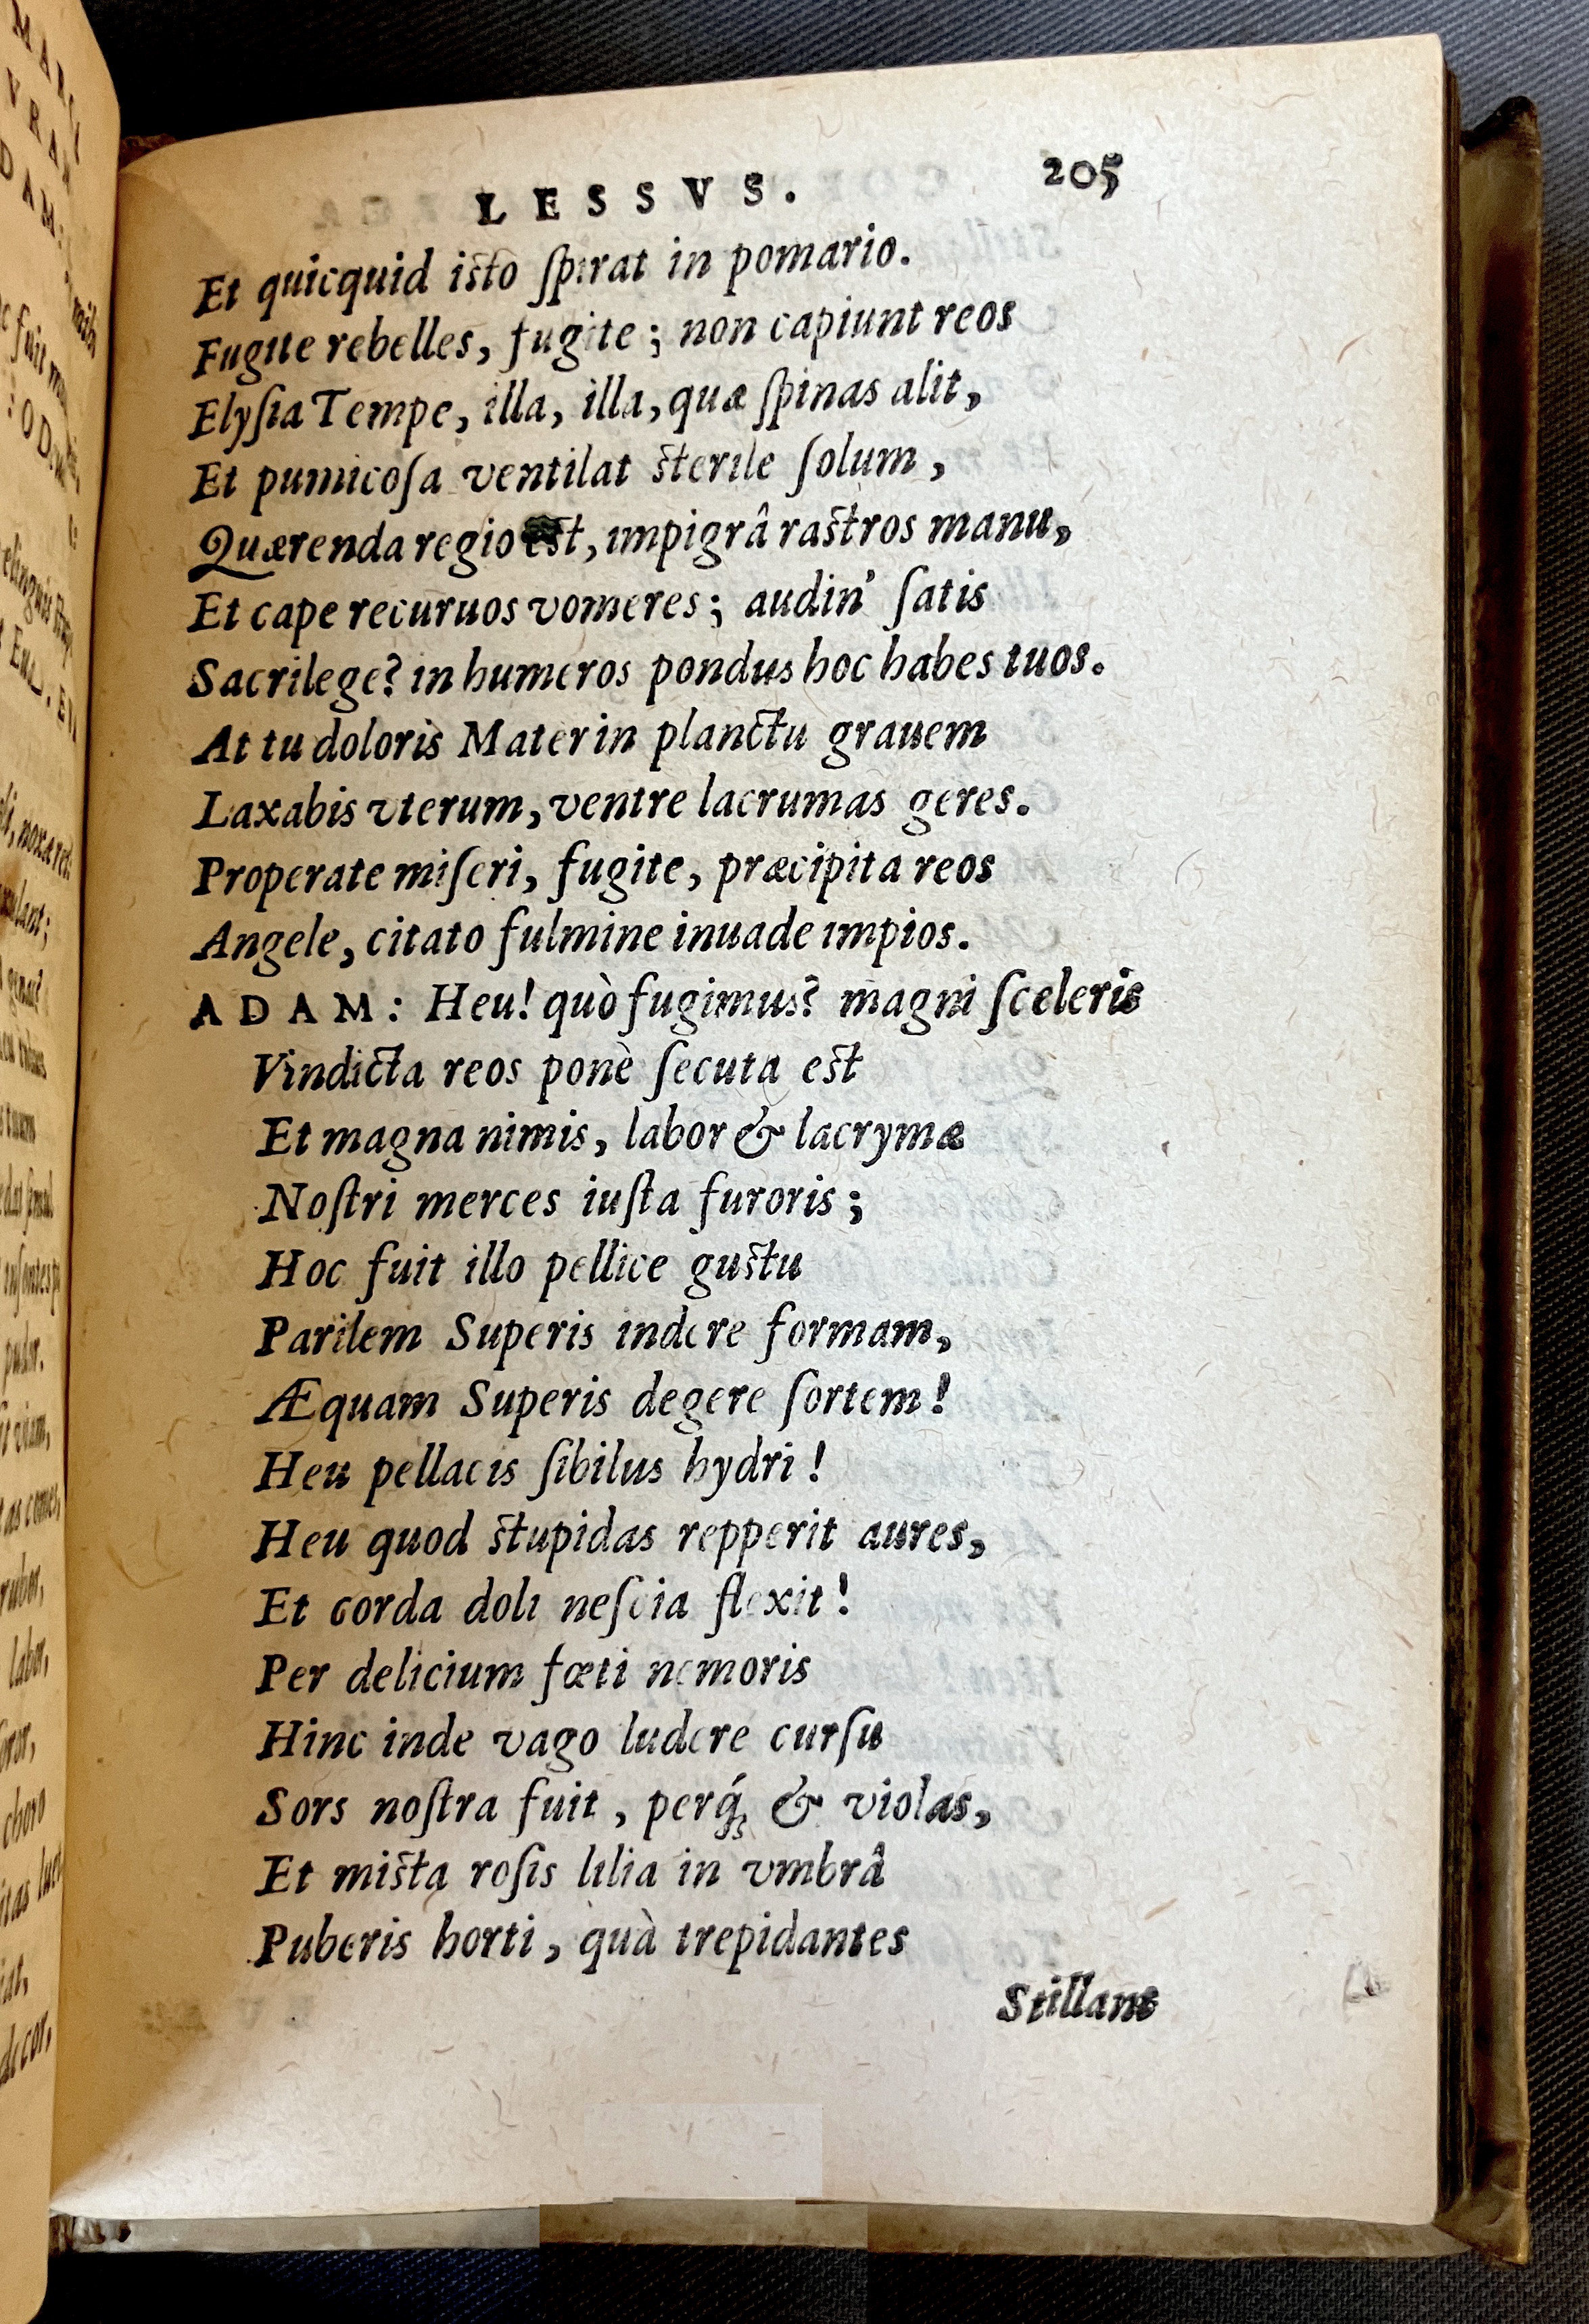 LESSVS. 205
Et quicquid isto ſpirat in pomario.
Fugite rebelles, fugite; non capiunt reos
Elyſia Tempe, illa, illa, quæ ſpinas alit,
Et pumicoſa ventilat sterile ſolum,
Quærenda regio est, impigrâ rastros manu,
Et cape recuruos vomeres; audin' ſatis
Sacrilege? in humeros pondus hoc habes tuos.
At tu doloris Mater in planctu grauem
Laxabis vterum, ventre lacrumas geres.
Properate miſeri, fugite, præcipita reos
Angele, citato fulmine inuade impios.
ADAM: Heu! quò fugimus? magni ſceleris
Vindicta reos ponè ſecuta est
Et magna nimis, labor & lacrymæ
Noſtri merces iuſta furoris;
Hoc fuit illo pellice gustu
Parilem Superis indere formam,
Æquam Superis degere ſortem!
Heu pellacis ſibilus hydri!
Heu quod stupidas repperit aures,
Et corda doli neſcia flexit!
Per delicium fœti nemoris
Hinc inde vago ludere curſu
Sors noſtra fuit, perq́; & violas,
Et mista roſis lilia in vmbrâ
Puberis horti, quà trepidantes
Stillant